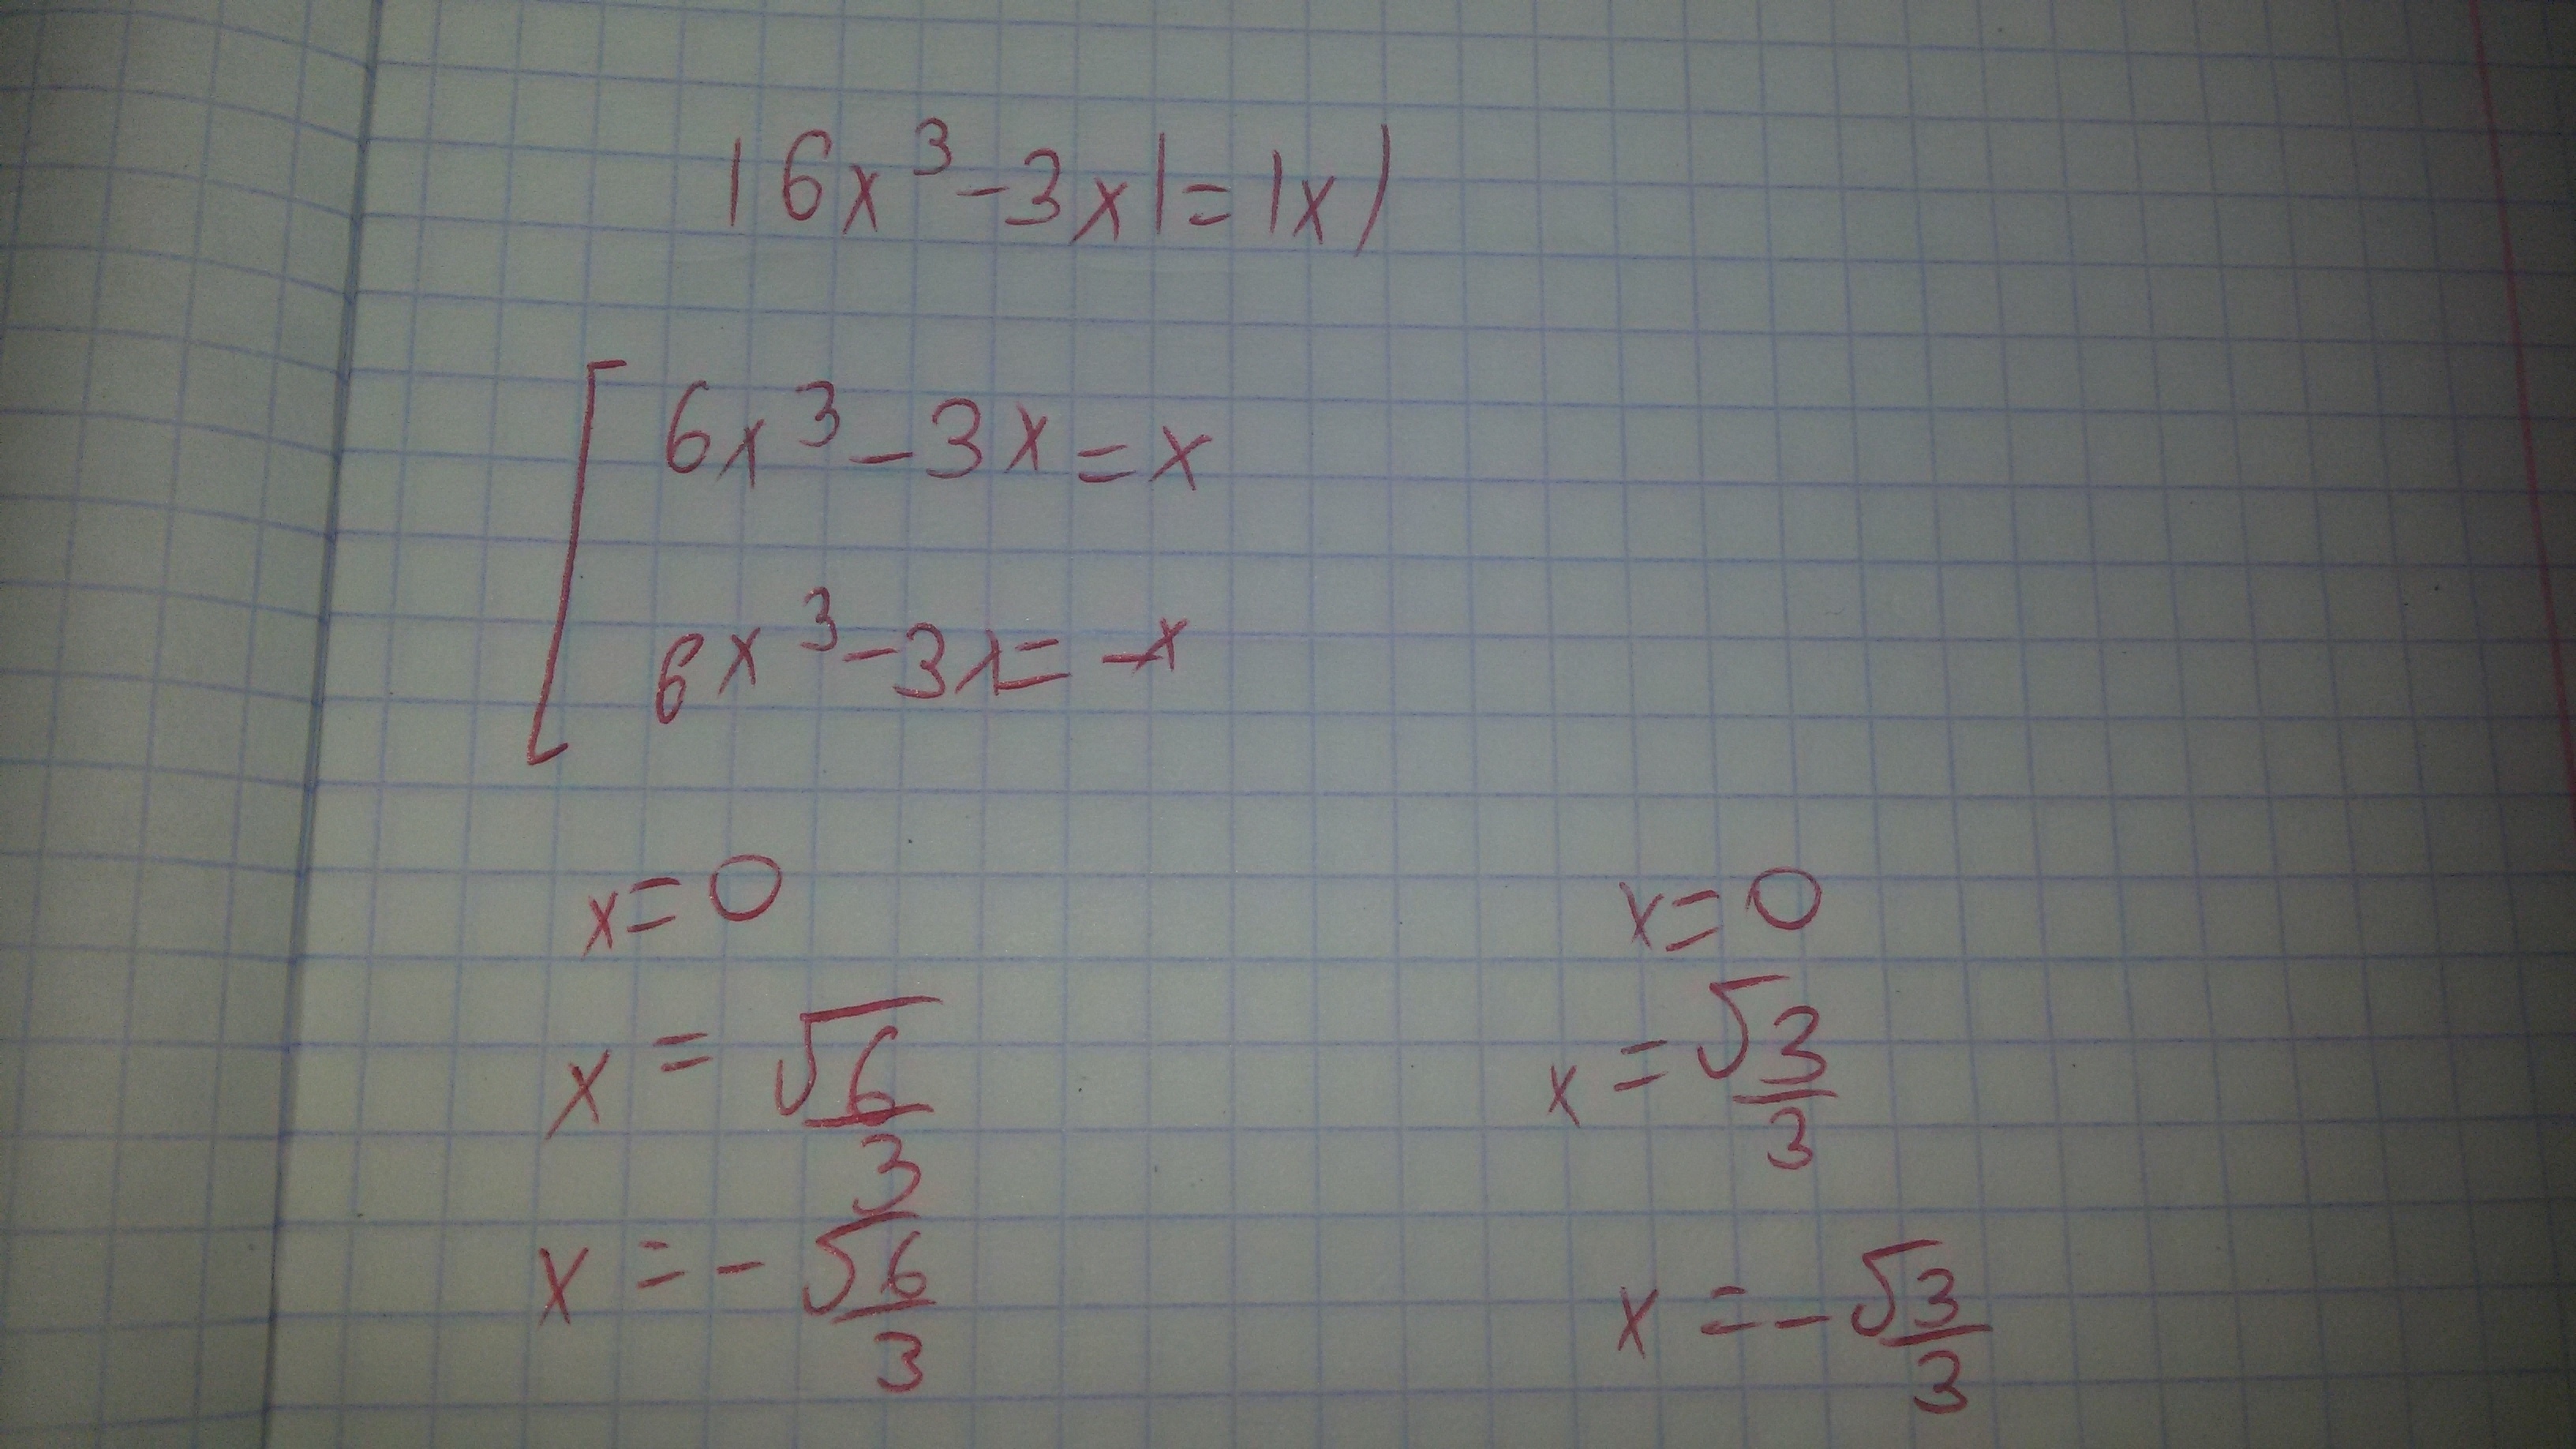 |6x³-3x|=|x|
6x³-3x=x
6x³-3x=-x
x=0
x=√6/3
x=-√6/3
x=0
x=√3/3
x=-√3/3